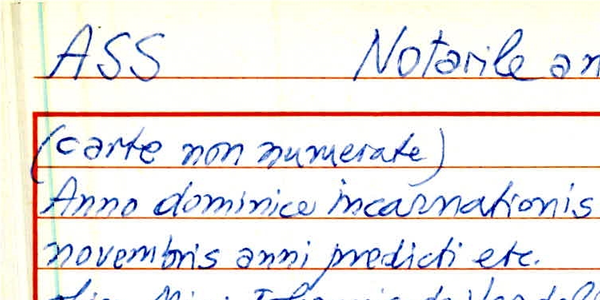 ASS Notarile an
(carte non numerate)
Anno dominice incarnationis
novembris anni predicti etc.